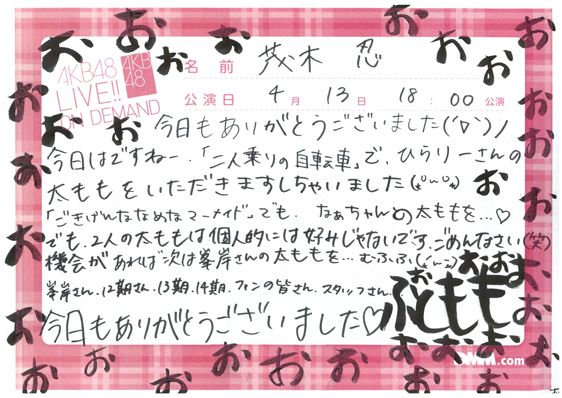 AKB48
LIVE!!
ON DEMAND
AKB
48
名前 茂木 忍
公演日 4月 13日 18:00 公演
今日もありがとうございました(´▽`)ノ
今日はですねー、「二人乗りの自転車」で、ひらりーさんの
太ももをいただきますしちゃいました(*°∪°*)
「ごきげんななめなマーメイド」でも、なぁちゃんの太ももを…♡
でも、2人の太ももは個人的には好みじゃないです、ごめんなさい(笑)
機会があれば次は峯岸さんの太ももを…むふふ
峯岸さん、12期さん、13期、14期、ファンの皆さん、スタッフさん、
今日もありがとうございました♡
おおおおおおおおお
ぶともも
DMM.com